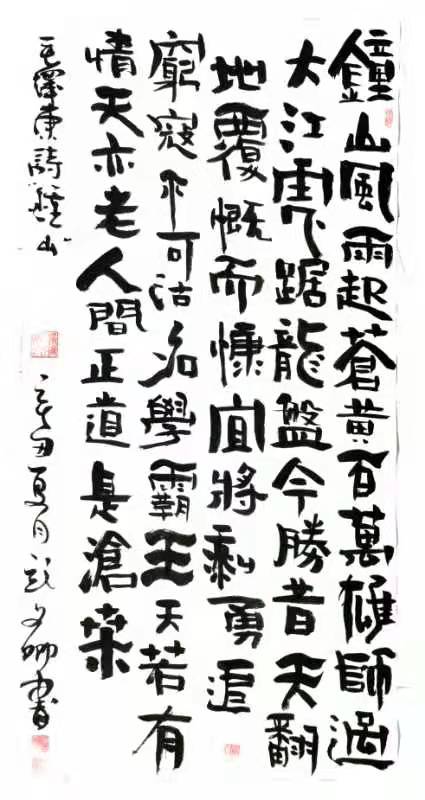 鐘山風雨起蒼黃百萬雄師過
大江虎踞龍盤今勝昔天翻
地覆慨而慷宜將剩勇追
窮寇不可沽名學霸王天若有
情天亦老人間正道是滄桒
毛澤東詩鐘山
辛丑夏月文卿書